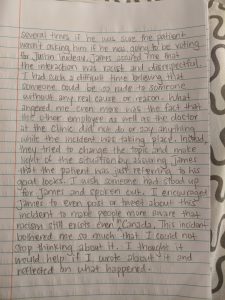 several times if he was sure the patient
wasn't asking him if he was going to be voting
for Justin Trudeau. James assured me that
the interaction was racist and disrespectful.
I had such a difficult time believing that
someone could be so rude to someone
without any real cause or reason. What
angered me even more was the fact that
the other employee as well as the doctor
at the clinic did not do or say anything
while the incident was taking place. Instead,
they tried to change the topic and make
light of the situation by assuring James
that the patient was just referring to his
good looks. I wish someone had stood up
for James and spoken out. I encouraged
James to even post or tweet about this
incident to make people more aware that
racism still exists even in Canada. This incident
bothered me so much that I could not
stop thinking about it. I thought it
would help if I wrote about it and
reflected on what happened.